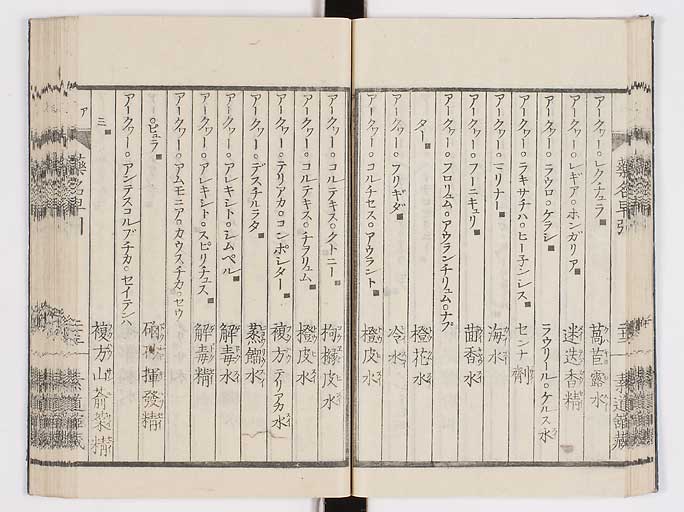 アークワー。レクチュラ 萵苣露水
アークワー。レギア。ホンガリア 迷迭香精
アークワー。ラウロ。ケラシ ラウリール。ケルス水
アークワー。ラキサチハ。ヒー子ンレス センナ剤
アークワー。マリナー 海水
アークワー。フーニキュリ 茴香水
アークワー。フロリュム。アウランチリュム。ナフ
ター 橙花水
アークワー。フリギダ 冷水
アークワー。コルチセス。アウラント 橙皮水
アークワー。コルテキス。クトニー 枸櫞皮水
アークワー。コルテキス。チヲリュム 橙皮水
アークワー。テリアカ。コンポシター 複方テリアカ水
アークワー。デスチルラタ 蒸餾水
アークワー。アレキシト。シムペル 解毒水
アークワー。アレキシト。スピリチュス 解毒精
アークワー。アムモニア。カウスチカ。セウ
。ピュラ 揮發精
アークワー。アンテスコルブチカ。セイデンハ
三 複方山葵菜精